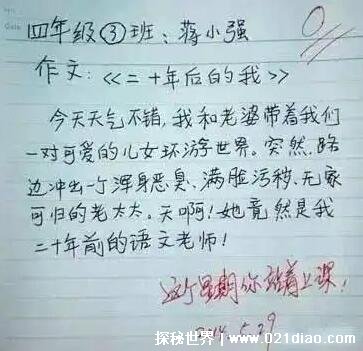 四年级③班：蒋小强
0
作文：《二十年后的我》
今天天气不错，我和老婆带着我们
一对可爱的儿女环游世界。突然，路
边冲出一个浑身恶臭、满脸污秽、无家
可归的老太太。天啊！她竟然是我
二十年前的语文老师！
这个星期你站着上课！
5.29
探秘世界 | www.021diao.com